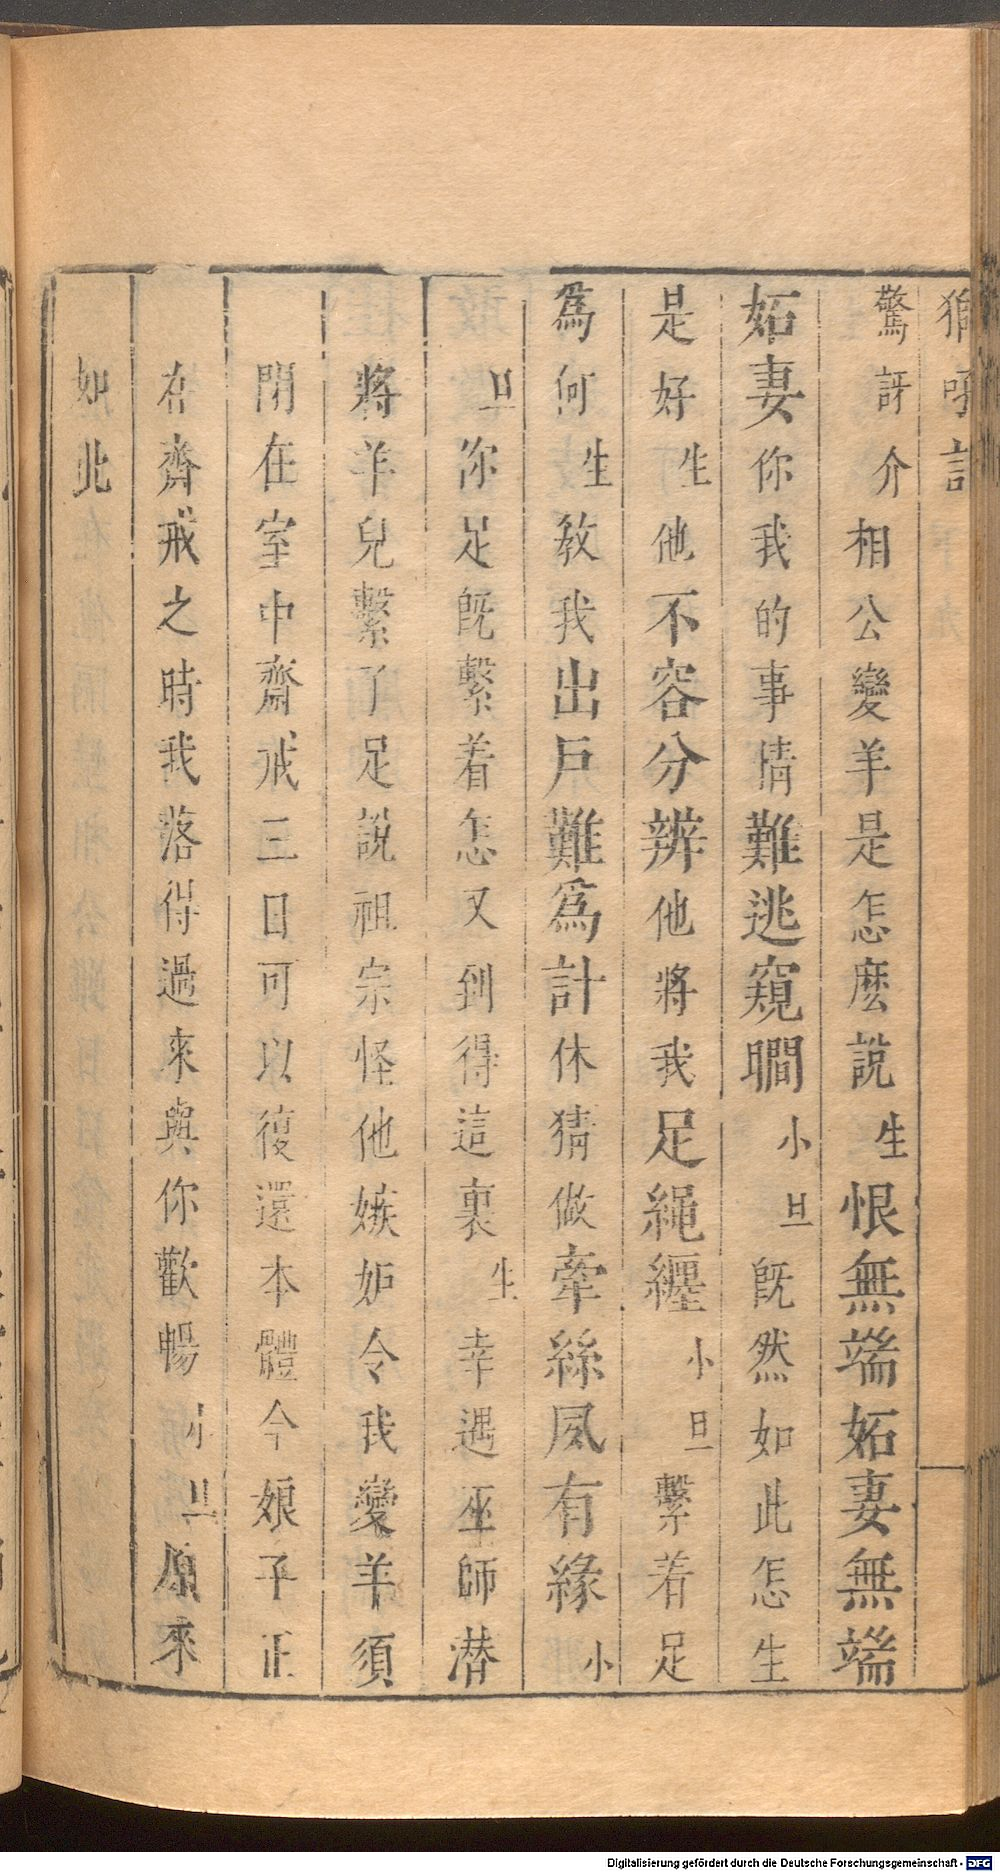 吼記
驚訝介相公變羊是怎麽說生恨無端妬妻無端
妬妻你我的事情難逃窺瞷小旦既然如此怎生
是好生他不容分辨他將我足繩纏小旦繫着足
爲何生教我出戶難爲計休猜做牽絲夙有緣小
旦你足既繫着怎又到得這裏生幸遇巫師潜
將羊兒繫了足說祖宗怪他嫉妒令我變羊須
閉在室中齋戒三日可以復還本體今娘子正
在齊戒之時我落得過來與你歡暢小旦原來
如此
Digitalisierung gefördert durch die Deutsche Forschungsgemeinschaft - DFG